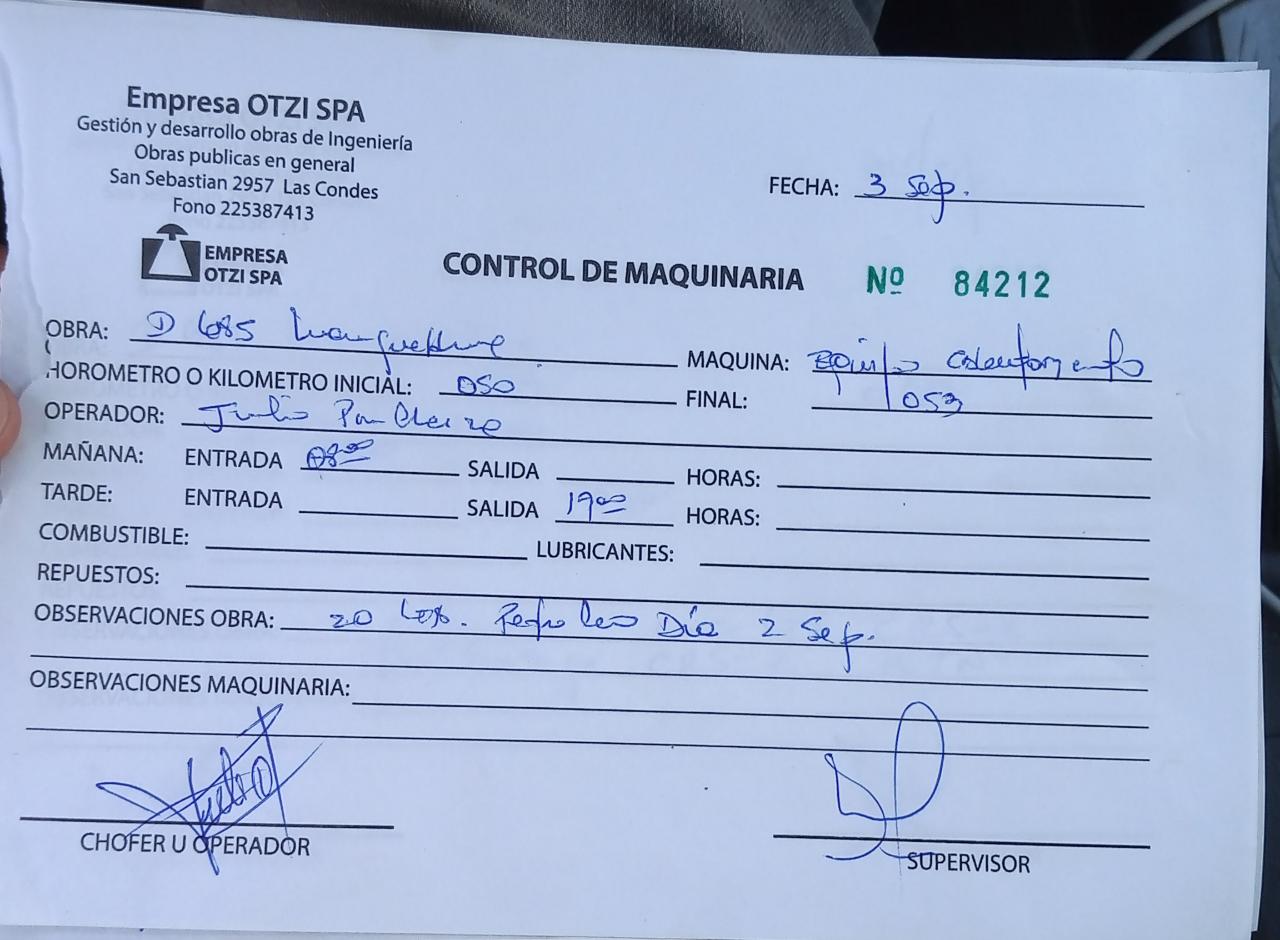 Empresa OTZI SPA
Gestión y desarrollo obras de Ingeniería
Obras publicas en general
San Sebastian 2957 Las Condes
Fono 225387413
FECHA: 3 Sep.
EMPRESA
OTZI SPA
CONTROL DE MAQUINARIA Nº 84212
OBRA: D 685 MAQUINA: Equipo
HOROMETRO O KILOMETRO INICIAL: 050 FINAL: 053
OPERADOR: Julio
MAÑANA: ENTRADA 08:00 SALIDA HORAS:
TARDE: ENTRADA SALIDA 19:00 HORAS:
COMBUSTIBLE: LUBRICANTES:
REPUESTOS:
OBSERVACIONES OBRA: 20 Lts. Petroleo Día 2 Sep.
OBSERVACIONES MAQUINARIA:
CHOFER U OPERADOR SUPERVISOR